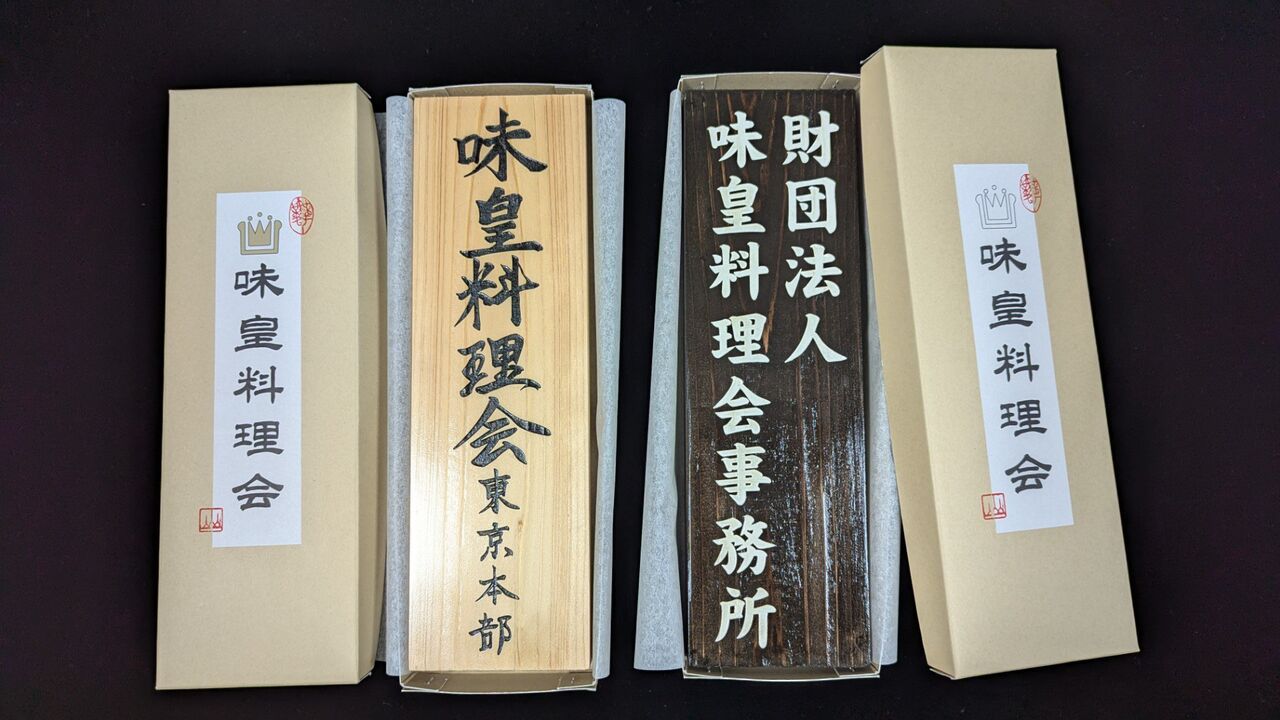 味皇料理会
味皇料理会東京本部
財団法人
味皇料理会事務所
味皇料理会